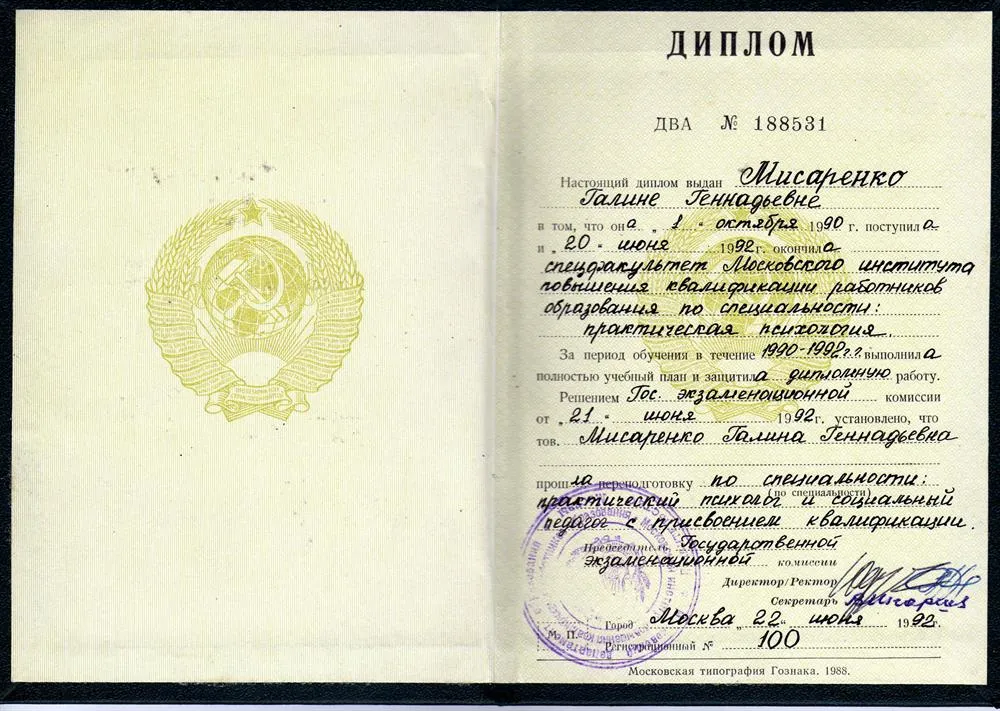 ДИПЛОМ
ДВА № 188531
Настоящий диплом выдан Мисаренко
Галине Геннадьевне
в том, что она „1“ октября 1990 г. поступила
и „20“ июня 1992 г. окончила
спецфакультет Московского института
повышения квалификации работников
образования по специальности:
практическая психология.
За период обучения в течение 1990-1992 г.г. выполнила
полностью учебный план и защитила дипломную работу.
Решением Гос. экзаменационной комиссии
от „21“ июня 1992 г. установлено, что
тов. Мисаренко Галина Геннадьевна
прошла переподготовку по специальности:
(по специальности)
практический психолог и социальный
педагог с присвоением квалификации.
Председатель Государственной
экзаменационной комиссии
Директор/Ректор
Секретарь
Город Москва „22“ июня 1992.
М. П. Регистрационный № 100
Московская типография Гознака. 1988.